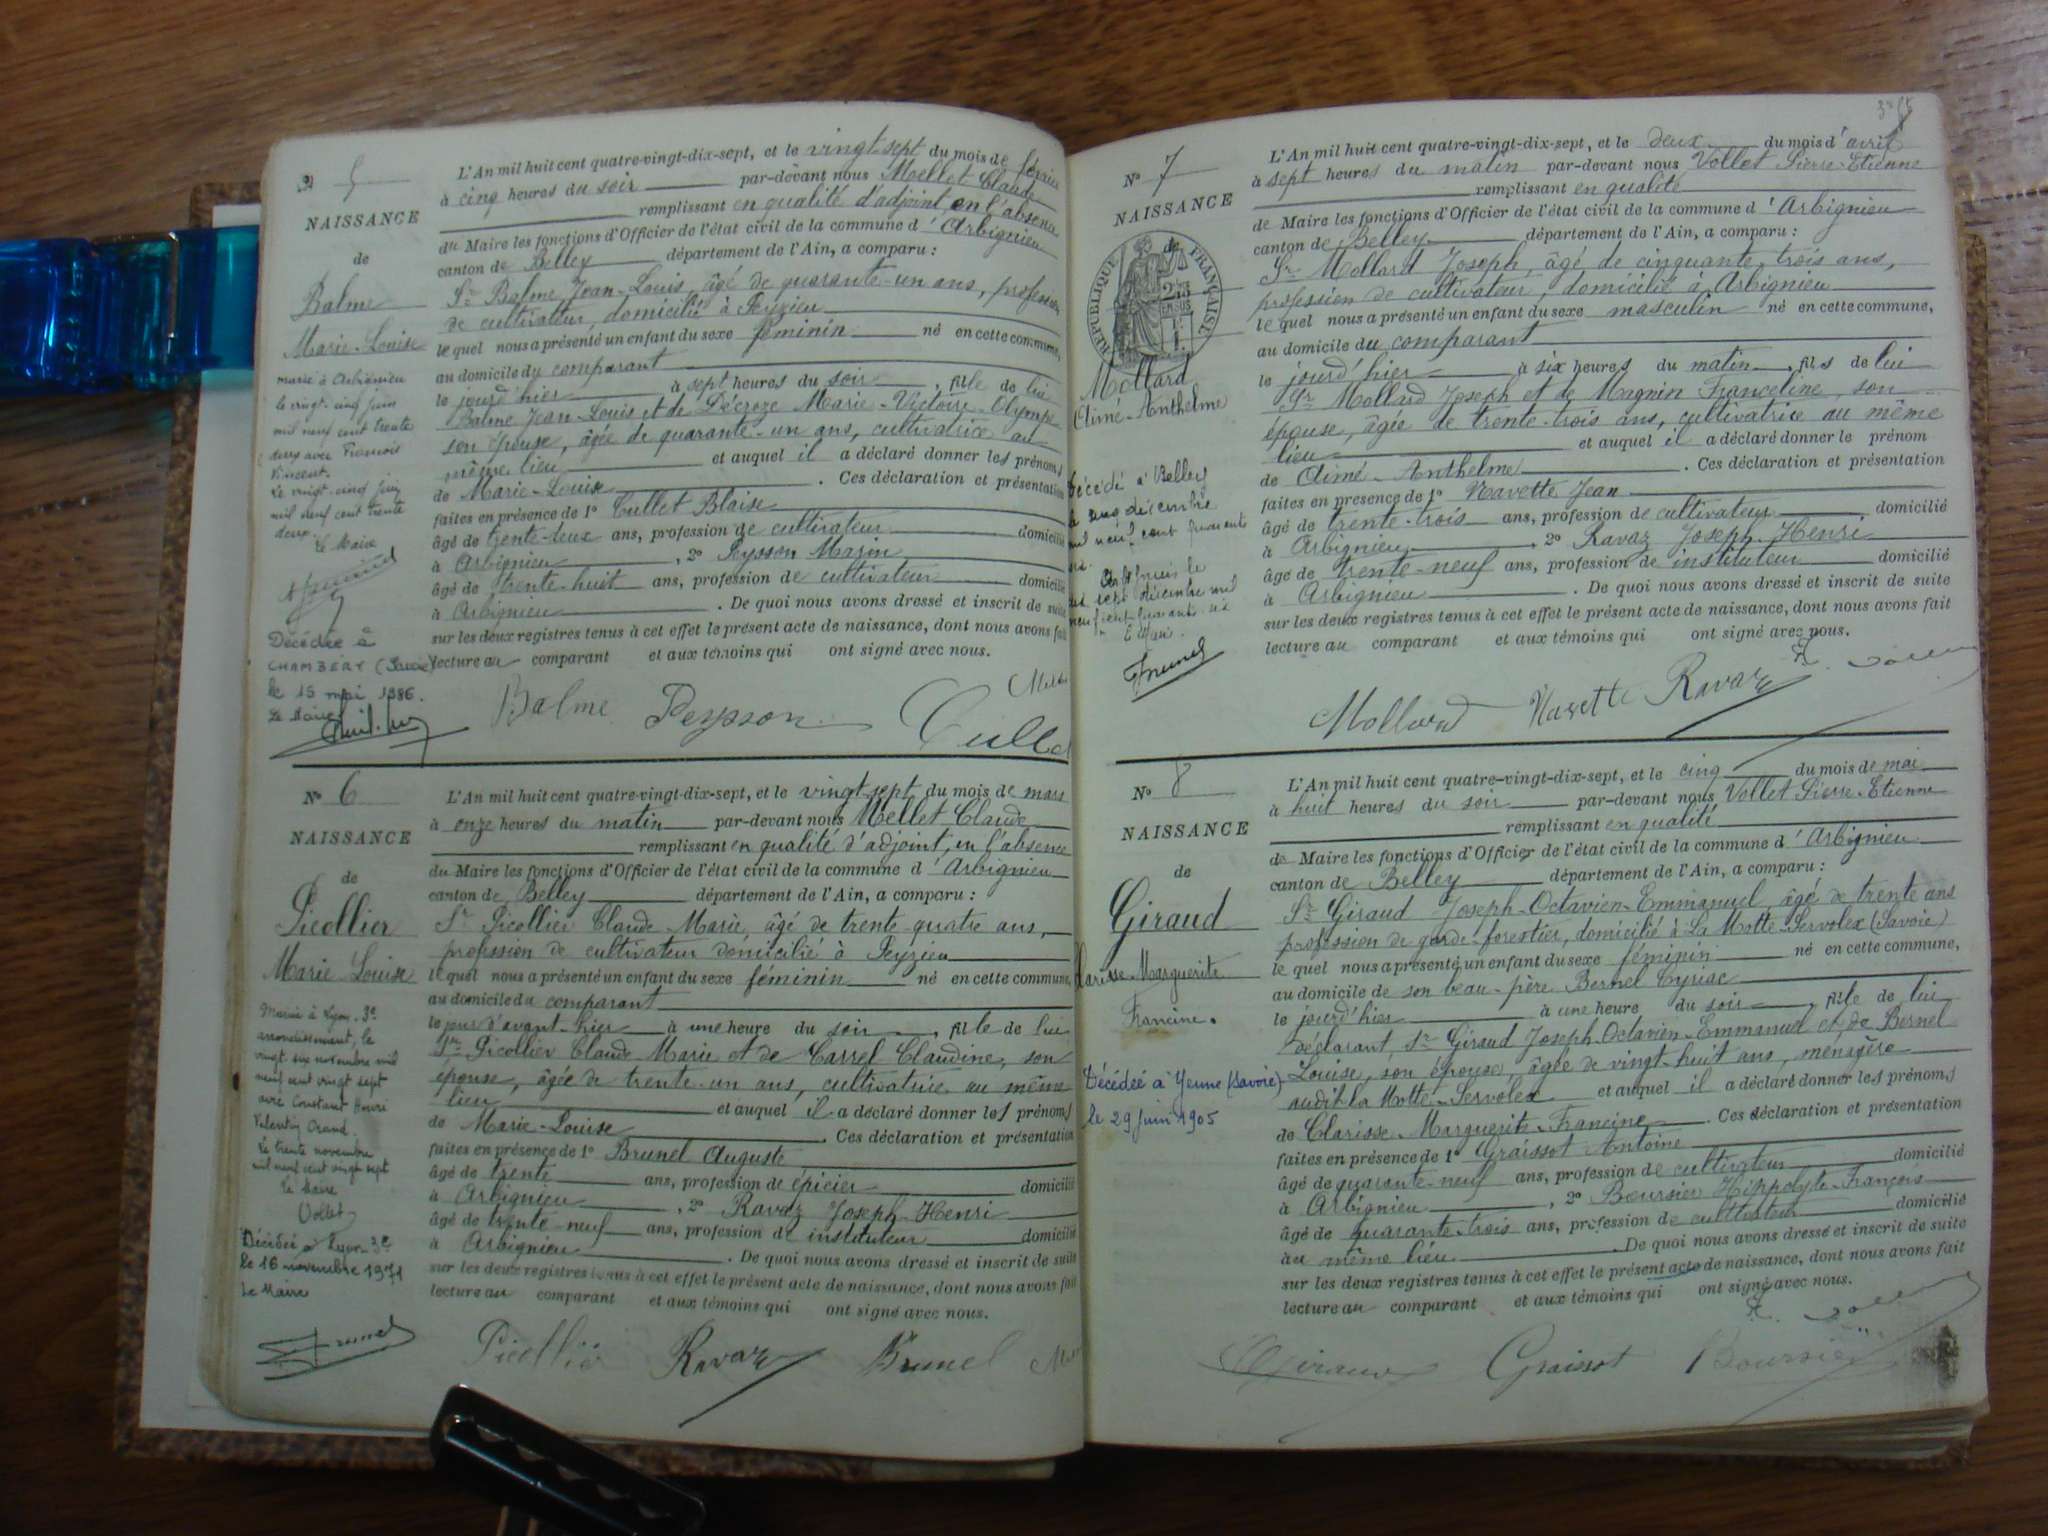 5
NAISSANCE
de
Balme
Marie-Louise
marié à Arbignieu
le vingt-cinq juin
mil neuf cent trente
deux avec François
Vincent.
Le vingt-cinq juin
mil neuf cent trente
deux.
Le Maire
Décédée à
CHAMBÉRY (Savoie)
le 15 mai 1986.
Le Maire
L'An mil huit cent quatre-vingt-dix-sept, et le vingt-sept du mois de février
à cinq heures du soir par-devant nous Mellet Claude
remplissant en qualité d'adjoint, en l'absence
du Maire les fonctions d'Officier de l'état civil de la commune d'Arbignieu
canton de Belley département de l'Ain, a comparu :
Sr Balme Jean-Louis, âgé de quarante-un ans, profession
de cultivateur, domicilié à Peyzieu
lequel nous a présenté un enfant du sexe féminin né en cette commune,
au domicile du comparant
le jourd'hier à sept heures du soir, fille de lui
Balme Jean-Louis et de Décroze Marie-Victoire-Olympe
son épouse, âgée de quarante-un ans, cultivatrice au
même lieu et auquel il a déclaré donner les prénoms
de Marie-Louise. Ces déclaration et présentation
faites en présence de 1º Cullet Blaise
âgé de trente-deux ans, profession de cultivateur domicilié
à Arbignieu, 2º Peysson Marin
âgé de trente-huit ans, profession de cultivateur domicilié
à Arbignieu. De quoi nous avons dressé et inscrit de suite
sur les deux registres tenus à cet effet le présent acte de naissance, dont nous avons fait
lecture au comparant et aux témoins qui ont signé avec nous.
Balme Peysson Cullet
Nº 6
NAISSANCE
de
Picollier
Marie Louise
Mariée à Lyon-3e
arrondissement, le
vingt six novembre mil
neuf cent vingt sept
avec Constant Henri
Valentin Orand.
Le trente novembre
mil neuf cent vingt sept
Le Maire
Vollet
Décédée à Lyon-3e
le 16 novembre 1971
Le Maire
Brunel
L'An mil huit cent quatre-vingt-dix-sept, et le vingt-sept du mois de mars
à onze heures du matin par-devant nous Mellet Claude
remplissant en qualité d'adjoint, en l'absence
du Maire les fonctions d'Officier de l'état civil de la commune d'Arbignieu
canton de Belley département de l'Ain, a comparu :
Sr Picollier Claude Marie, âgé de trente quatre ans,
profession de cultivateur domicilié à Peyzieu
lequel nous a présenté un enfant du sexe féminin né en cette commune,
au domicile du comparant
le jour d'avant-hier à une heure du soir, fille de lui
Sr Picollier Claude Marie et de Carrel Claudine, son
épouse, âgée de trente-un ans, cultivatrice au même
lieu et auquel il a déclaré donner les prénoms
de Marie-Louise. Ces déclaration et présentation
faites en présence de 1º Brunel Auguste
âgé de trente ans, profession de épicier domicilié
à Arbignieu, 2º Ravaz Joseph-Henri
âgé de trente-neuf ans, profession de instituteur domicilié
à Arbignieu. De quoi nous avons dressé et inscrit de suite
sur les deux registres tenus à cet effet le présent acte de naissance, dont nous avons fait
lecture au comparant et aux témoins qui ont signé avec nous.
Picollier Ravaz Brunel
Nº 7
NAISSANCE
de
RÉPUBLIQUE FRANÇAISE
Mollard
Aimé-Anthelme
Décédé à Belley
mil neuf cent quarante
six.
Brunel
L'An mil huit cent quatre-vingt-dix-sept, et le deux du mois d'avril
à sept heures du matin par-devant nous Vollet Pierre-Etienne
remplissant en qualité
de Maire les fonctions d'Officier de l'état civil de la commune d'Arbignieu
canton de Belley département de l'Ain, a comparu :
Sr Mollard Joseph, âgé de cinquante-trois ans,
profession de cultivateur, domicilié à Arbignieu
lequel nous a présenté un enfant du sexe masculin né en cette commune,
au domicile du comparant
le jourd'hier à six heures du matin, fils de lui
Sr Mollard Joseph et de Magnin Franceline, son
épouse, âgée de trente-trois ans, cultivatrice au même
lieu et auquel il a déclaré donner le prénom
de Aimé-Anthelme. Ces déclaration et présentation
faites en présence de 1º Navette Jean
âgé de trente-trois ans, profession de cultivateur domicilié
à Arbignieu, 2º Ravaz Joseph-Henri
âgé de trente-neuf ans, profession de instituteur domicilié
à Arbignieu. De quoi nous avons dressé et inscrit de suite
sur les deux registres tenus à cet effet le présent acte de naissance, dont nous avons fait
lecture au comparant et aux témoins qui ont signé avec nous.
Mollard Navette Ravaz
Nº 8
NAISSANCE
de
Giraud
Clarisse-Marguerite
Francine.
Décédée à Yenne (Savoie)
le 29 juin 1905
L'An mil huit cent quatre-vingt-dix-sept, et le cinq du mois de mai
à huit heures du soir par-devant nous Vollet Pierre-Etienne
remplissant en qualité
de Maire les fonctions d'Officier de l'état civil de la commune d'Arbignieu
canton de Belley département de l'Ain, a comparu :
Sr Giraud Joseph-Octavien-Emmanuel, âgé de trente ans
profession de garde-forestier, domicilié à La Motte-Servolex (Savoie)
lequel nous a présenté un enfant du sexe féminin né en cette commune,
au domicile de son beau-père Bernel Cyriac
le jourd'hier à une heure du soir, fille de lui
déclarant, Sr Giraud Joseph-Octavien-Emmanuel et de Bernel
Louise, son épouse, âgée de vingt-huit ans, ménagère
audit La Motte-Servolex et auquel il a déclaré donner les prénoms
de Clarisse-Marguerite-Francine. Ces déclaration et présentation
faites en présence de 1º Graissot Antoine
âgé de quarante-neuf ans, profession de cultivateur domicilié
à Arbignieu, 2º Boursier Hippolyte-François
âgé de quarante-trois ans, profession de cultivateur domicilié
au même lieu. De quoi nous avons dressé et inscrit de suite
sur les deux registres tenus à cet effet le présent acte de naissance, dont nous avons fait
lecture au comparant et aux témoins qui ont signé avec nous.
Giraud Graissot Boursier